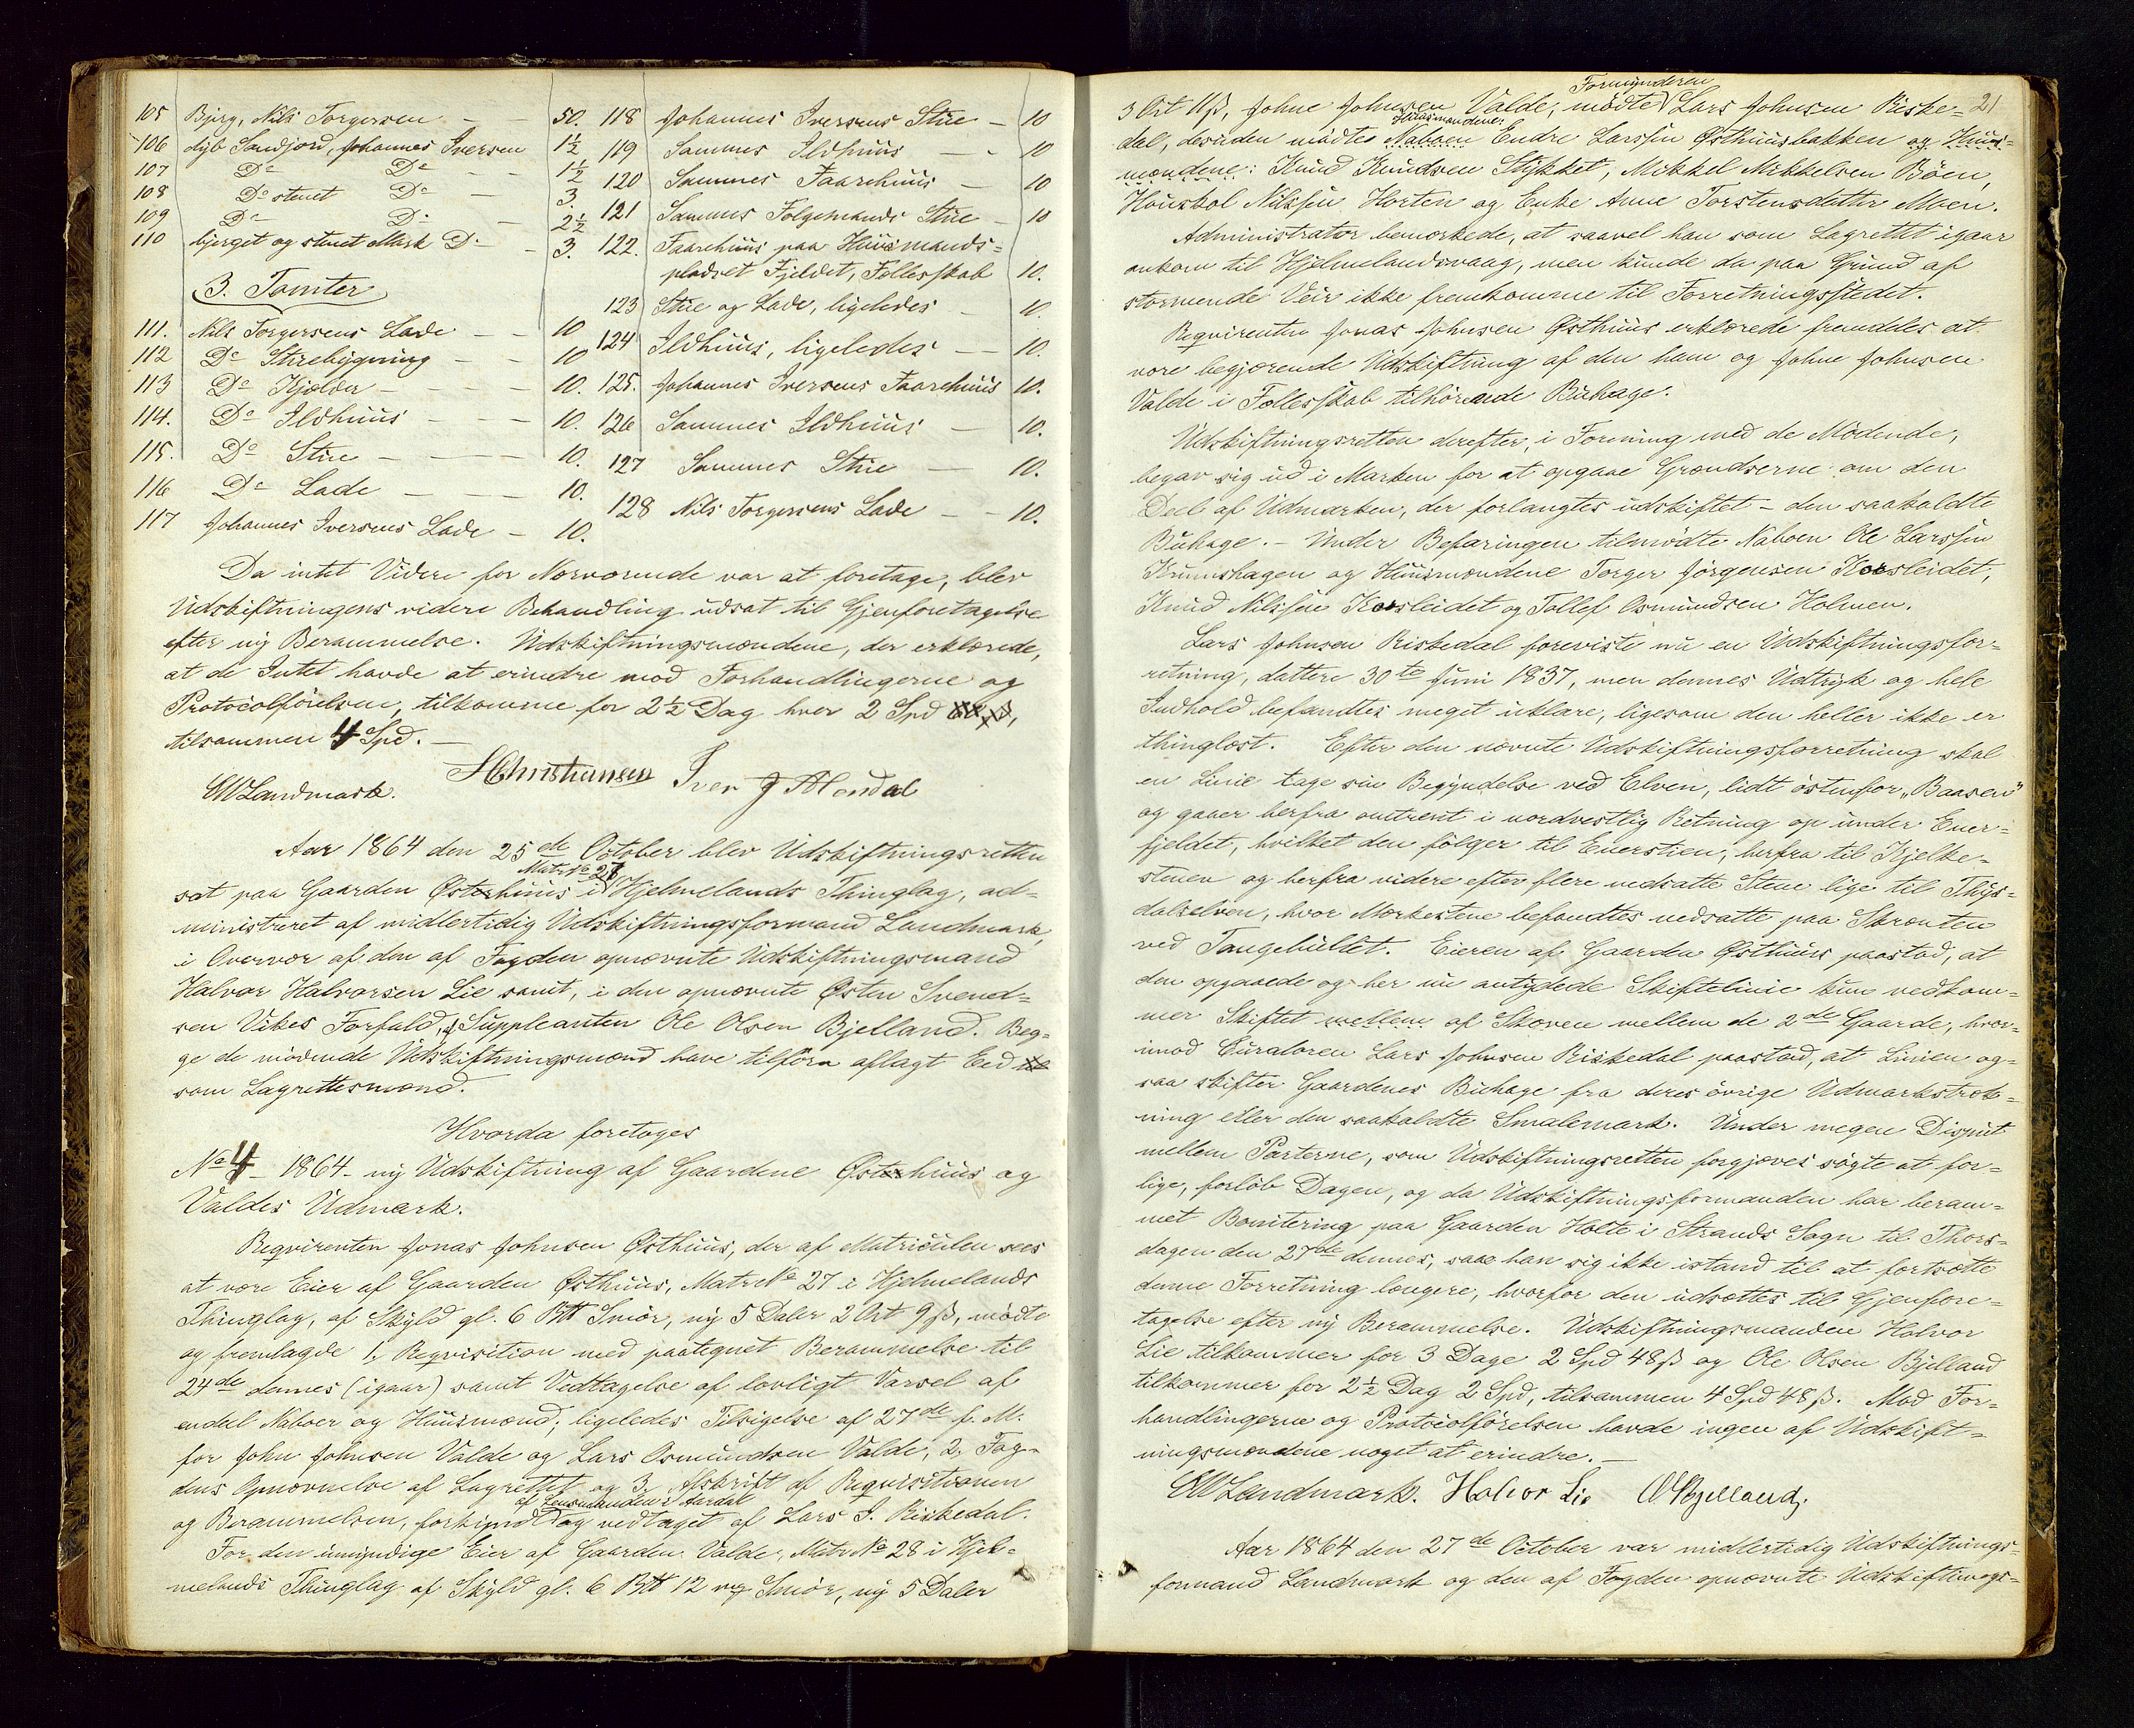 105 Bjerg, Nils Torgersen — — 50.
106 dyb Sandjord, Johannes Iversen 1½
107 Do Do — — 1½
108 Do stenet Do — 3.
109 Do Do — 2½
110 bjerget og stenet Mark Do — 3.
3. Tomter
111. Nils Torgersens Lade — — 10
112 Do Stuebygning — — 10
113 Do Kjelder — — — 10.
114. Do Ildhuus — — — 10.
115. Do Stue — — — — 10.
116 Do Lade — — — 10.
117 Johannes Iversens Lade — 10.
118 Johannes Iversens Stue — 10
119 Sammes Ildhuus — - 10
120 Sammes Faarehuus — 10
121 Sammes Følgemands Stue — 10
122. Faarehuus paa Huusmands=
pladset Fjeldet, Fellesskab 10.
123 Stue og Lade, ligeledes — 10.
124 Ildhuus, ligeledes — — 10.
125. Johannes Iversens Faarehuus 10.
126 Sammes Ildhuus — 10.
127 Sammes Stue — 10.
128 Nils Torgersens Lade — - 10.
Da intet Videre for Nærværende var at foretage, blev
Udskiftningens videre Behandling udsat til Gjenforetagelse
efter ny Berammelse. Udskiftningsmændene, der erklærede,
at de Intet havde at erindre mod Forhandlingerne og
Protocolførelsen, tilkomme for 2½ Dag hver 2 Spd
tilsammen 4 Spd. —
EWLandmark. HChristiansen Iver J
Aar 1864 den 25de October blev Udskiftningsretten
Matr No 27
sat paa Gaarden Østerhuus i Hjelmelands Thinglag, ad=
ministreret af midlertidig Udskiftningsformand Landmark,
i Overvær af den af Fogden opnævnte Udskiftningsmand
Halvor Halvorsen Lie samt, i den opnævnte Østen Svend=
sen Vikes Forfald, af Suppleanten Ole Olsen Bjelland. Beg=
ge de mødende Udskiftningsmænd have tilforn aflagt Eed
som Lagrettesmænd.
Hvorda foretoges
No 4 - 1864 - ny Udskiftning af Gaardene Østerhuus og
Valdes Udmark.
Reqvirenten Jonas Johnsen Østhuus, der af Matriculen sees
at være Eier af Gaarden Østhuus, Matr No 27 i Hjelmelands
Thinglag, af Skyld gl. 6 Pd Smør, ny 5 Daler 2 Ort 9 ß, mødte
og fremlagde 1, Reqvisition med paategnet Berammelse til
24de dennes (igaar) samt Vedtagelse af lovligt Varsel af
endel Naboer og Huusmænd, ligeledes Tilsigelse af 27de f. M.
for John Johnsen Valde og Lars Osmundsen Valde, 2. Fog=
dens Opnævnelse af Lagrettet og 3. Afskrift af Reqvisitionen
af Lensmanden i Aardal
og Berammelsen, forkyndt og vedtaget af Lars J. Riskedal.
For den umyndige Eier af Gaarden Valde, Matr No 28 i Hjel=
melands Thinglag af Skyld gl. 6 Pd 12 mg Smør, ny 5 Daler
Formynderen 21
3 Ort 11 ß, Johne Johnsen Valde, mødte Lars Johnsen Riske=
Huusmændene:
dal, desuden mødte Naboen Endre Larssen Østhuusbakken og Huus=
mændene: Knud Knudsen Stykket, Mikkel Mikkelsen Bøen,
Houskol Nilssen Horten og Enke Anne Torstensdatter Moen.
Administrator bemærkede, at saavel han som Lagrettet igaar
ankom til Hjelmelandsvaag, men kunde da paa Grund af
stormende Veir ikke fremkomme til Forretningsstedet.
Reqvirenten Jonas Johnsen Østhuus erklærede fremdeles at
være begjærende Udskiftning af den ham og Johne Johnsen
Valde i Fællesskab tilhørende Buhage.
Udskiftningsretten derefter, i Forening med de Mødende,
begav sig ud i Marken for at opgaae Grændserne om den
Deel af Udmarken, der forlangtes udskiftet — den saakaldte
Buhage. — Under Befaringen tilmødte Naboen Ole Larssen
Krumshagen og Huusmændene Torger Jørgensen Korsleidet,
Knud Nilssen Korsleidet og Tollef Osmundsen Holmen.
Lars Johnsen Riskedal foreviste nu en Udskiftningsfor=
retning, datteret 30te Juni 1837, men dennes Udtryk og hele
Indhold befandtes meget uklare, ligesom den heller ikke er
thinglæst. Efter den nævnte Udskiftningsforretning skal
en Linie tage sin Begyndelse ved Elven, lidt østenfor „Baasen"
og gaaer herfra omtrent i nordvestlig Retning op under Ener=
fjeldet, hvilket den følger til Enerstien, herfra til Kjelke=
stenen og herfra videre efter flere nedsatte Stene lige til Thys=
dalselven, hvor Mærkestene befandtes nedsatte paa Skrænten
ved Tangehullet. Eieren af Gaarden Østhuus paastod, at
den opgaaede og her nu antydede Skiftelinie kun vedkom=
mer Skiftet mellem af Skoven mellem de 2de Gaarde, hvor=
imod Curatoren Lars Johnsen Riskedal paastod, at Linien og=
saa skifter Gaardenes Buhage fra deres øvrige Udmarkstræk=
ning eller den saakaldte Smalemark. Under megen Disput
mellem Parterne, som Udskiftningsretten forgjæves søgte at for=
lige, forløb Dagen, og da Udskiftningsformanden har beram=
met Bonitering paa Gaarden Holte i Strands Sogn til Thors=
dagen den 27de dennes, saae han sig ikke istand til at fortsætte
denne Forretning længere, hvorfor den udsættes til Gjenfore=
tagelse efter ny Berammelse. Udskiftningsmanden Halvor
Lie tilkommer for 3 Dage 2 Spd 48 ß og Ole Olsen Bjelland
tilkommer for 2½ Dag 2 Spd, tilsammen 4 Spd 48 ß. Mod For=
handlingerne og Protocolførelsen havde ingen af Udskift=
ningsmændene noget at erindre. —
EWLandmark. Halvor Lie OOBjelland,
Aar 1864 den 27de October var midlertidig Udskiftnings=
formand Landmark og den af Fogden opnævnte Udskiftnings=